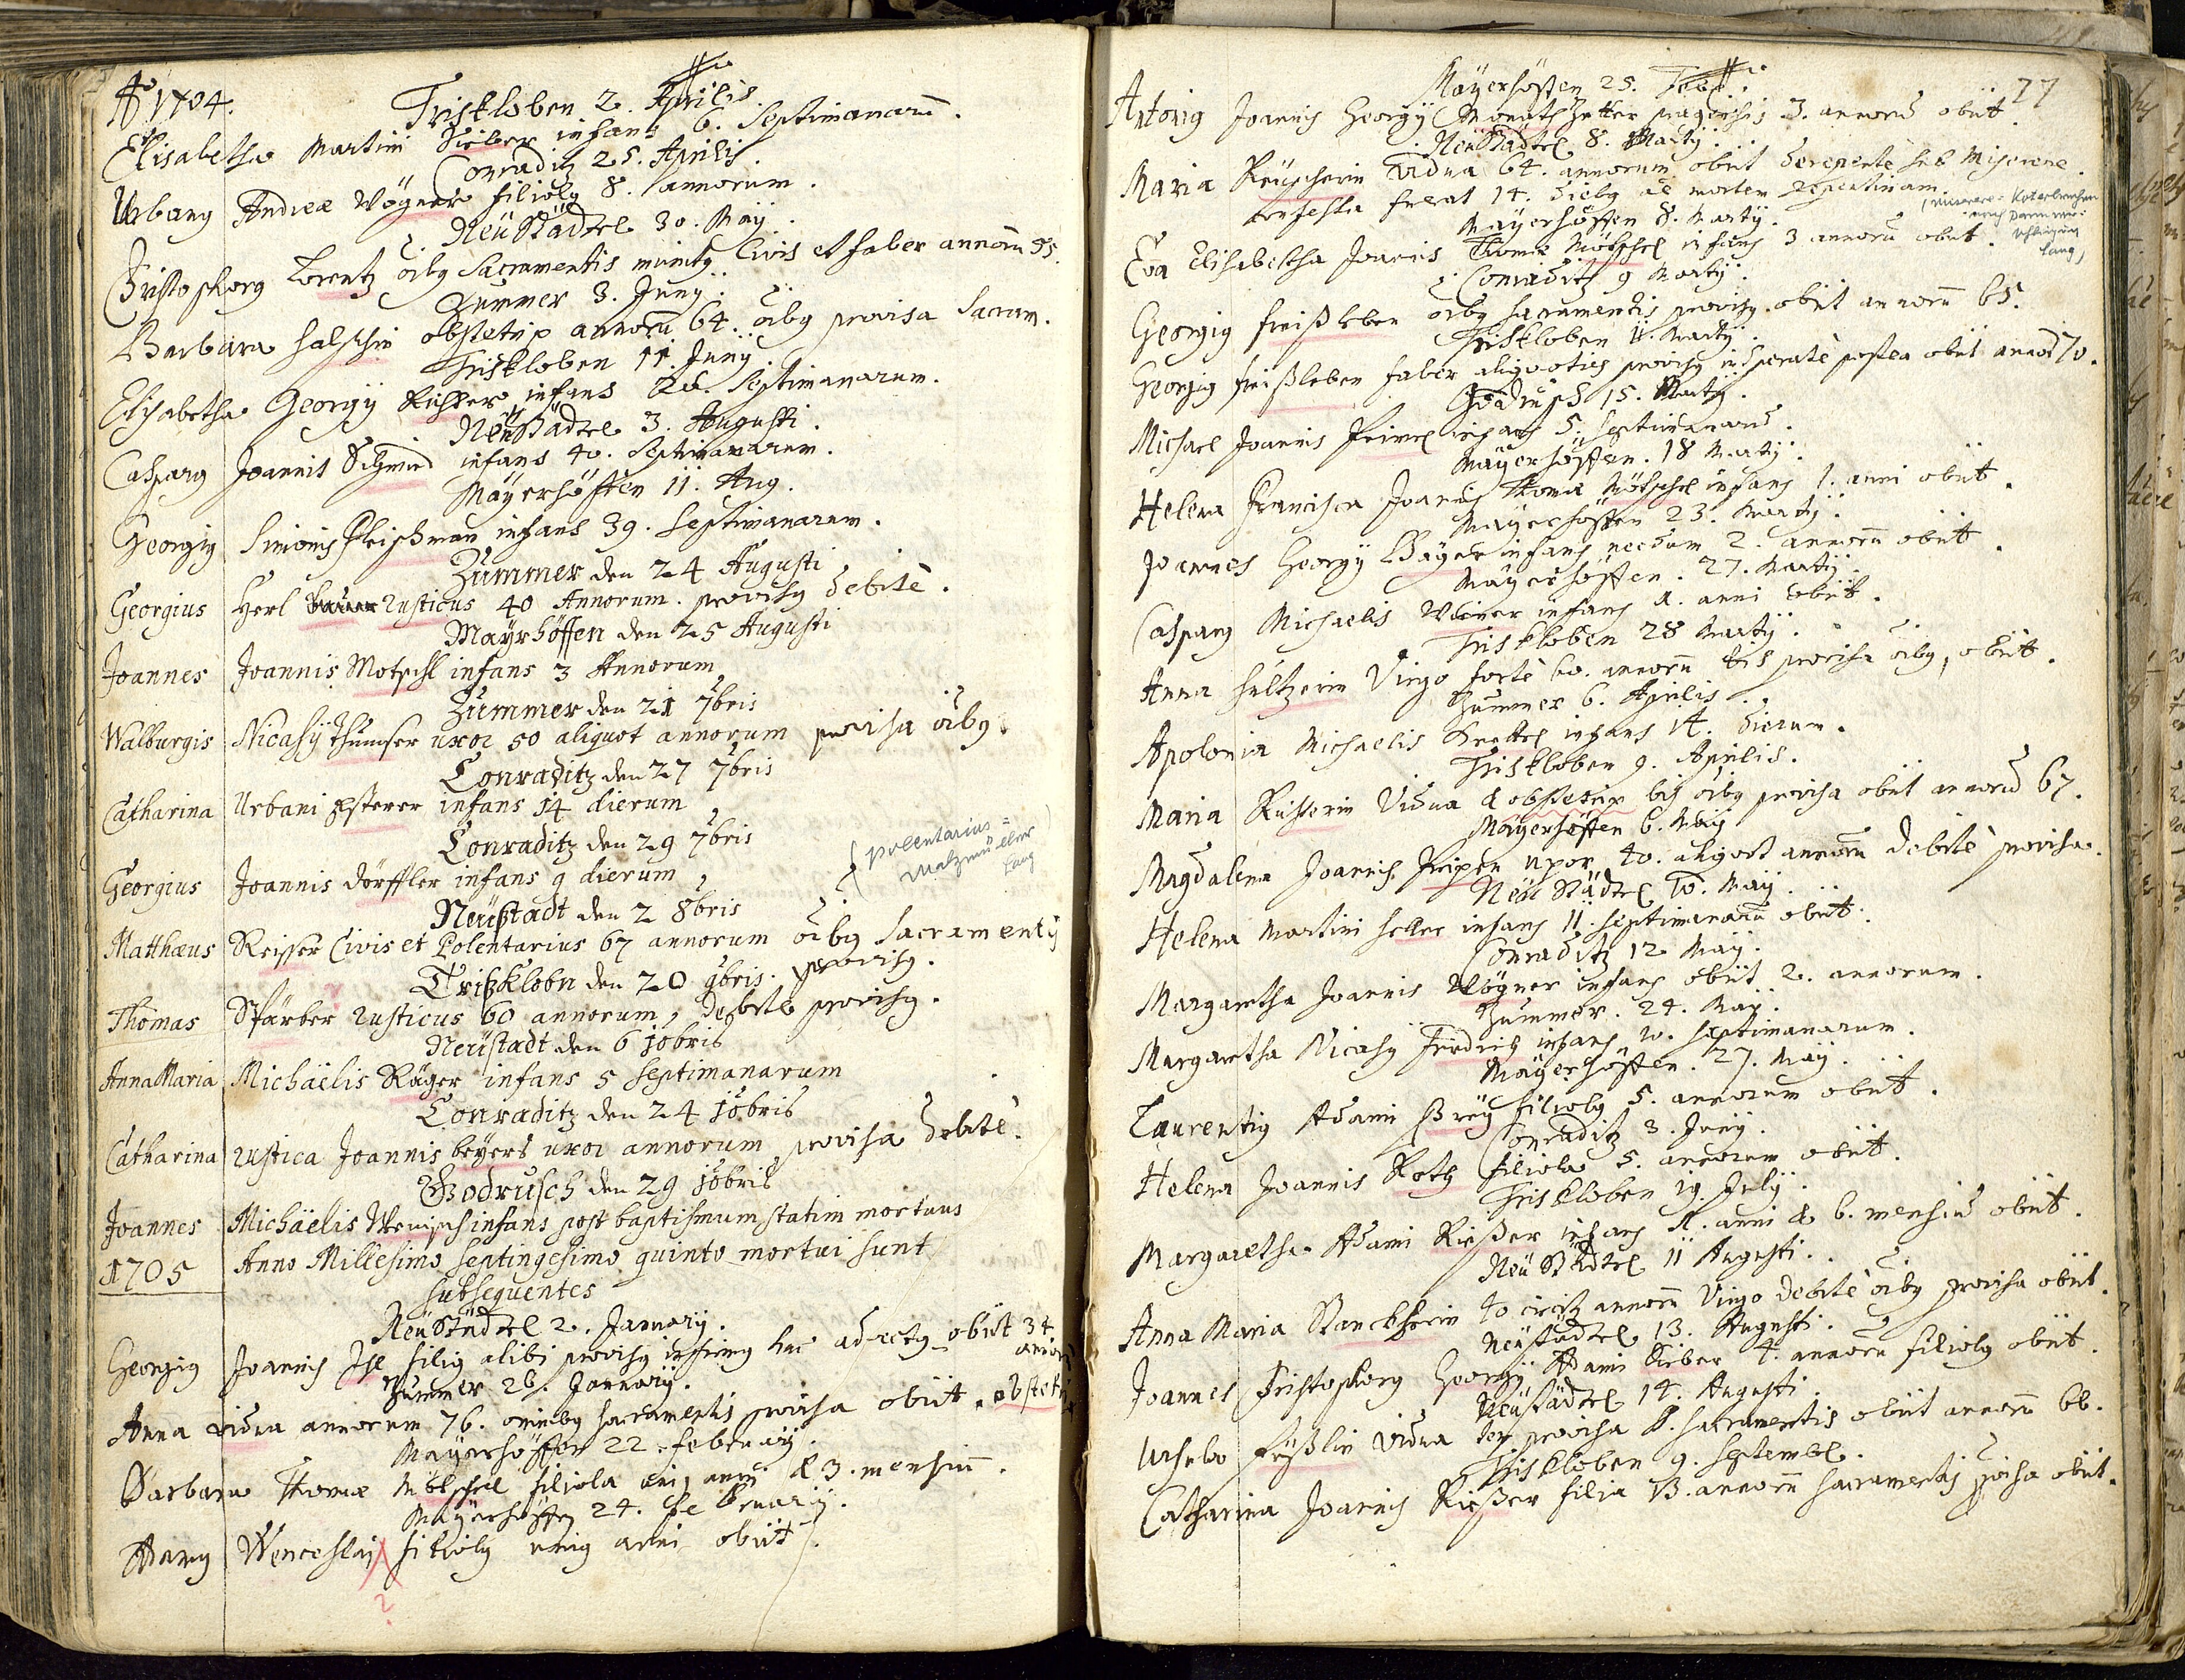 Ao 1704.
Triskloben 2. Aprilis.
Elisabetha Martini Sieber infans 6. Septimanarum.
Conraditz 25. Aprilis.
Urbanus Andreæ Wögner filiolus 8. annorum.
Neüstädtel 30. Maij.
Christophorus Lorentz oibus Sacramentis munitus Civis et faber annorum 55.
Zummer 3. Junij.
Barbara obstetrix annorum 64. oibus provisa Sacram.
Triskloben 11. Junij.
Elisabetha Georgij Richter infans 20. Septimanarum.
Neüstädtel 3. Augusti.
Casparus Joannis Schmid infans 40. Septimanarum.
Mayerhöffen 11. Aug.
Georgius Simonis Fleischman infans 39. Septimanarum.
Zummer den 24 Augusti
Georgius Herl rusticus 40 Annorum. provisus debite.
Mayrhöffen den 25 Augusti
Joannes Joannis Motschl infans 3 Annorum
Zummer den 21 7bris
Walburgis Nicasij Thumser uxor 50 aliquot annorum provisa oibus.
Conraditz den 27 7bris
Catharina Urbani infans 14 dierum
Conraditz den 29 7bris
(polentarius =
Malzmüller
Lang)
Georgius Joannis Dörffler infans 9 dierum,
Neüstadt den 2 8bris
Matthæus Reisser Civis et Polentarius 67 annorum oibus Sacramentis
provisus.
Trißklobn den 20 9bris.
Thomas Sparber rusticus 60 annorum, debite provisus.
Neüstadt den 6 10bris
Anna Maria Michäelis Räger infans 5 septimanarum
Conraditz den 24 10bris
Catharina rustica Joannis beyers uxor annorum, provisa debite.
Godrusch den 29 10bris
Joannes Michäelis Wenisch infans post baptismum statim mortuus
1705 Anno Millesimo Septingesimo quinto mortui sunt
subsequentes
Neüstädtel 2. Januarij.
Georgius Joannis filius alibi provisus infirmus huc advectus obiit 34
annorum
Zummer 26. Januarij.
Anna vidua annorum 76. omnibus sacramentis provisa obiit. obstetrix
Mayerhöffen 22. Februarij.
Barbara Thomæ Mötschel filiola unius anni & 3. mensium.
Mayerhöffen 24. Februarij.
Adamus Wenceslai filiolus unius anni obiit.
2
77
Mayerhöffen 25. Feb.
Antonius Joannis Georgij 3. annorum obiit.
Neüstädtel 8. Martij.
Maria Reuscherin Vidua 64. annorum obiit derepente sub Miserere.
confessa fuerat 14. diebus ante mortem repentinam.
(miserere = Koterbrechen
nach Darmver-
schlingung
Lang)
Mayerhöffen 8. Martij.
Eva Elisabetha Joannis Thomæ Mötschel infans 3 annorum obiit.
Conraditz 9 Martij.
Georgius freißleben oibus sacramentis provisus obiit annorum 65.
Triskloben 11. Martij.
Georgius freißleben faber aliquoties provisus insperate postea obiit annorum 70.
Godrusch 15. Martij.
Michael Joannis infans 5. septimanarum.
Mayerhöffen. 18 Martij.
Helena Francisca Joannis Thomæ Mötschel infans 1. anni obiit.
Mayerhöffen 23. Martij.
Joannes Georgij Bayer infans necdum 2. annorum obiit.
Mayerhöffen. 27. Martij.
Casparus Michaelis infans 1. anni obiit.
Triskloben 28 Martij.
Anna Sultzerin Virgo forte 60. annorum ter provisa oibus, obiit.
Zummer 6. Aprilis.
Apolonia Michaelis infans 14. dierum.
Triskloben 9. Aprilis.
Maria Richterin Vidua & obstetrix bis oibus provisa obiit annorum 67.
Mayerhöffen 6. Maij
Magdalena Joannis uxor 40. aliquot annorum debite provisa.
Neüstädtel 10. Maij.
Helena Martini Heller infans 11. septimanarum obiit.
Conraditz 12 Maij.
Margaretha Joannis Wögner infans obiit 2. annorum.
Zummer. 24. Maij.
Margaretha Nicasij Fridrich infans 20. septimanarum.
Mayerhöffen. 27. Maij.
Laurentius Adami filiolus 5. annorum obiit.
Conraditz 3. Junij.
Helena Joannis Roth filiola 5. annorum obiit.
Triskloben 19. Julij.
Margaretha Adami Rießer infans 1. anni & 6. mensium obiit.
Neüstädtel 11 Augusti.
Anna Maria 40 circiter annorum Virgo debite oibus provisa obiit.
Neüstädtel 13. Augusti.
Joannes Christophorus Georgij Adami Sieber 4. annorum filiolus obiit.
Neüstädtel 14. Augusti.
Ursula vidua ter provisa S. sacramentis obiit annorum 66.
Triskloben 9. Septemb.
Catharina Joannis Rießer filia 13. annorum sacramentis provisa obiit.